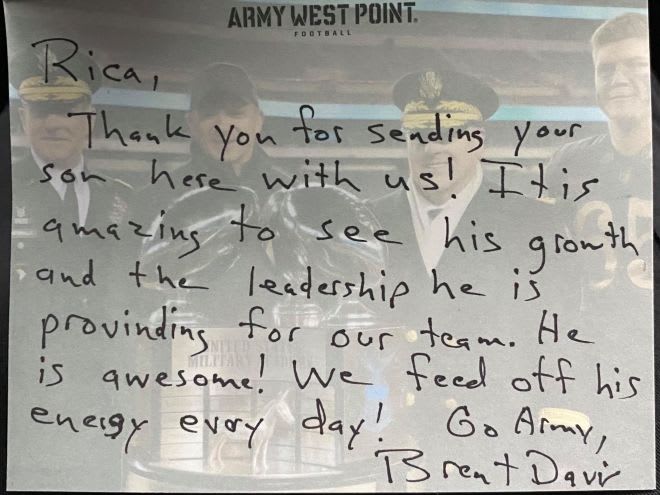 ARMY WEST POINT.
FOOTBALL
Rica,
Thank you for sending your
son here with us! It is
amazing to see his growth
and the leadership he is
provinding for our team. He
is awesome! We feed off his
energy every day! Go Army,
Brent Davis